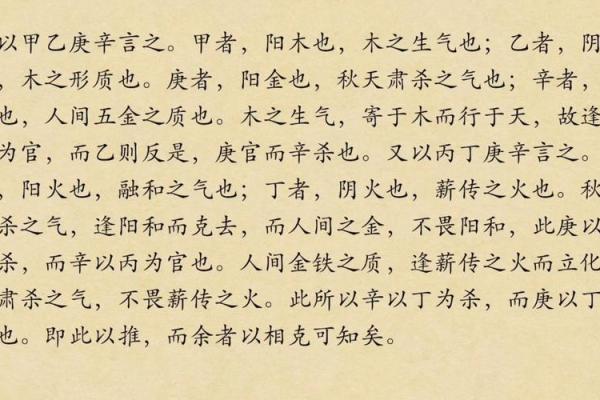 以甲乙庚辛言之。甲者，阳木也，木之生气也；乙者，阴
，木之形质也。庚者，阳金也，秋天肃杀之气也；辛者，
也，人间五金之质也。木之生气，寄于木而行于天，故逢
为官，而乙则反是，庚官而辛杀也。又以丙丁庚辛言之。
，阳火也，融和之气也；丁者，阴火也，薪传之火也。秋
杀之气，逢阳和而克去，而人间之金，不畏阳和，此庚以
杀，而辛以丙为官也。人间金铁之质，逢薪传之火而立化
肃杀之气，不畏薪传之火。此所以辛以丁为杀，而庚以丁
也。即此以推，而余者以相克可知矣。